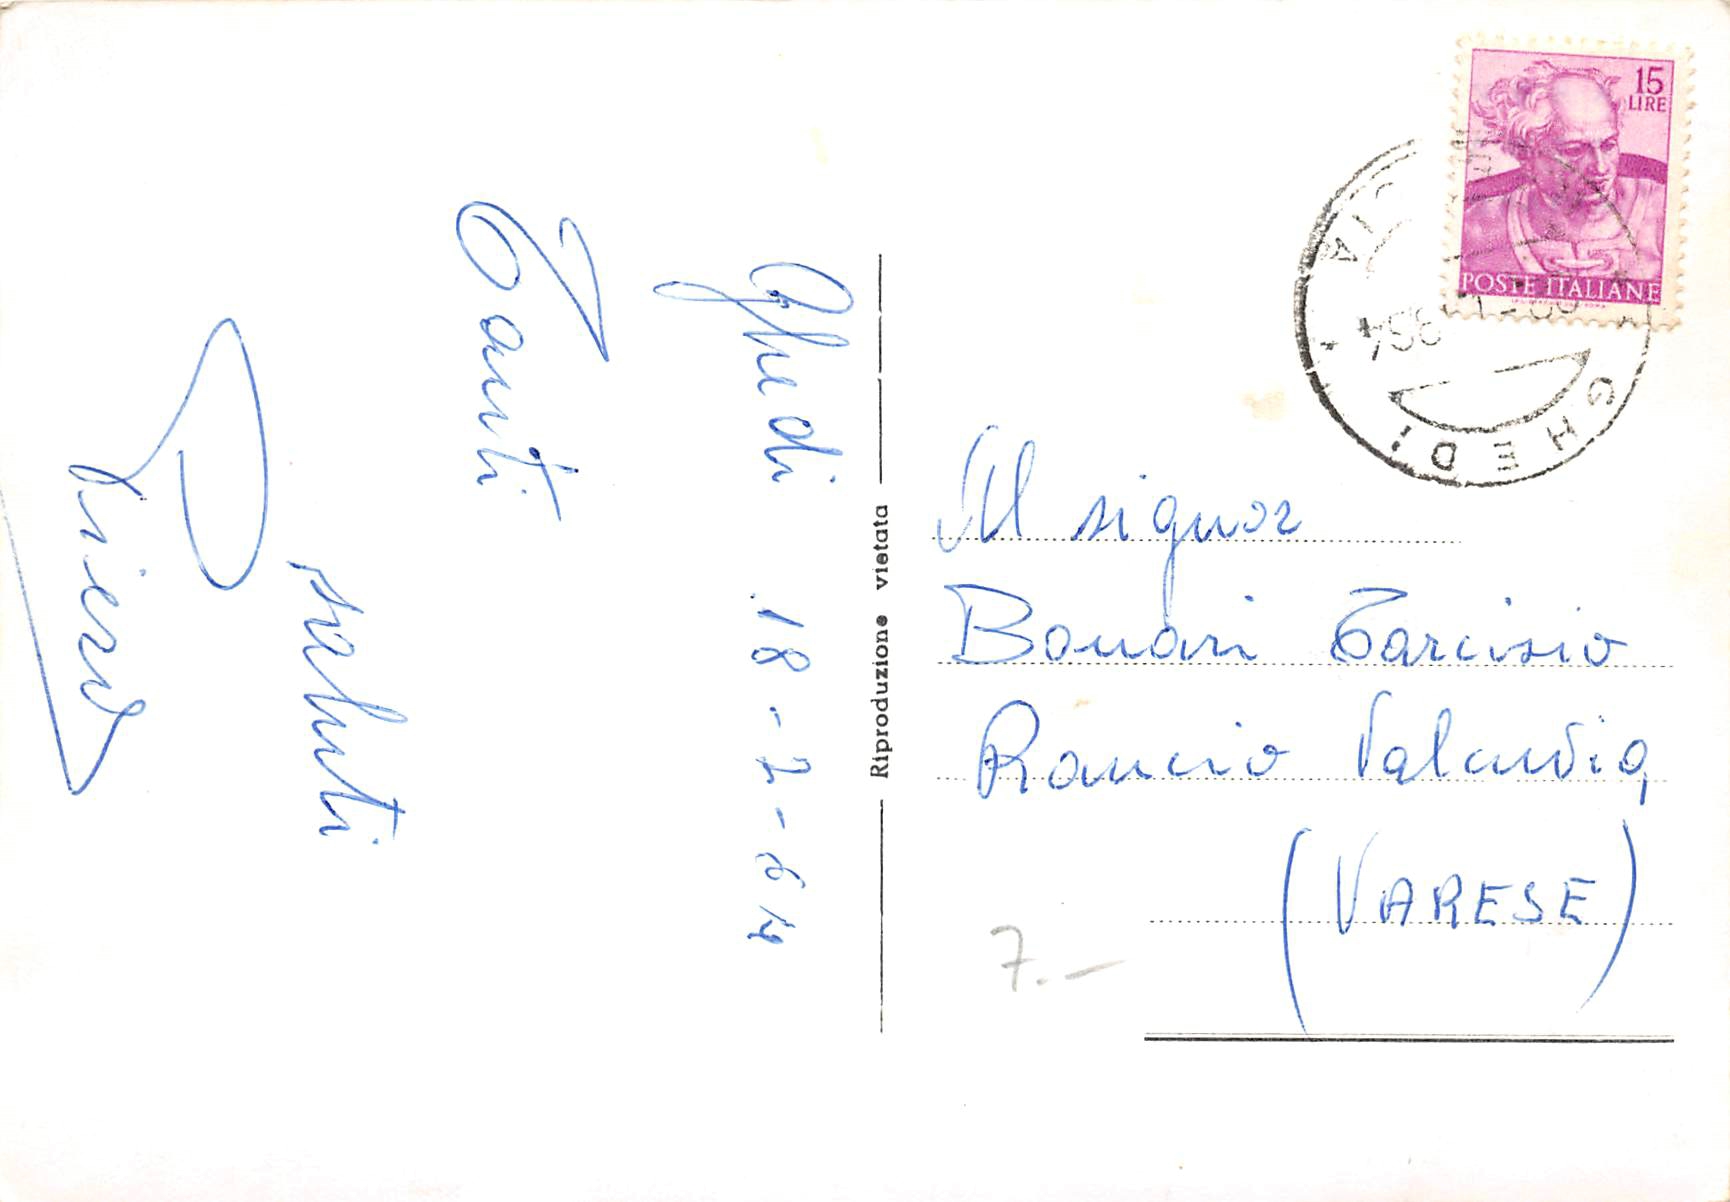 Ghedi 18-2-64
Tanti
saluti
Piero
Riproduzione vietata
15
LIRE
POSTE ITALIANE
GHEDI
Al signor
Bonari Tarcisio
Rancio Valcuvia
(VARESE)
7.-